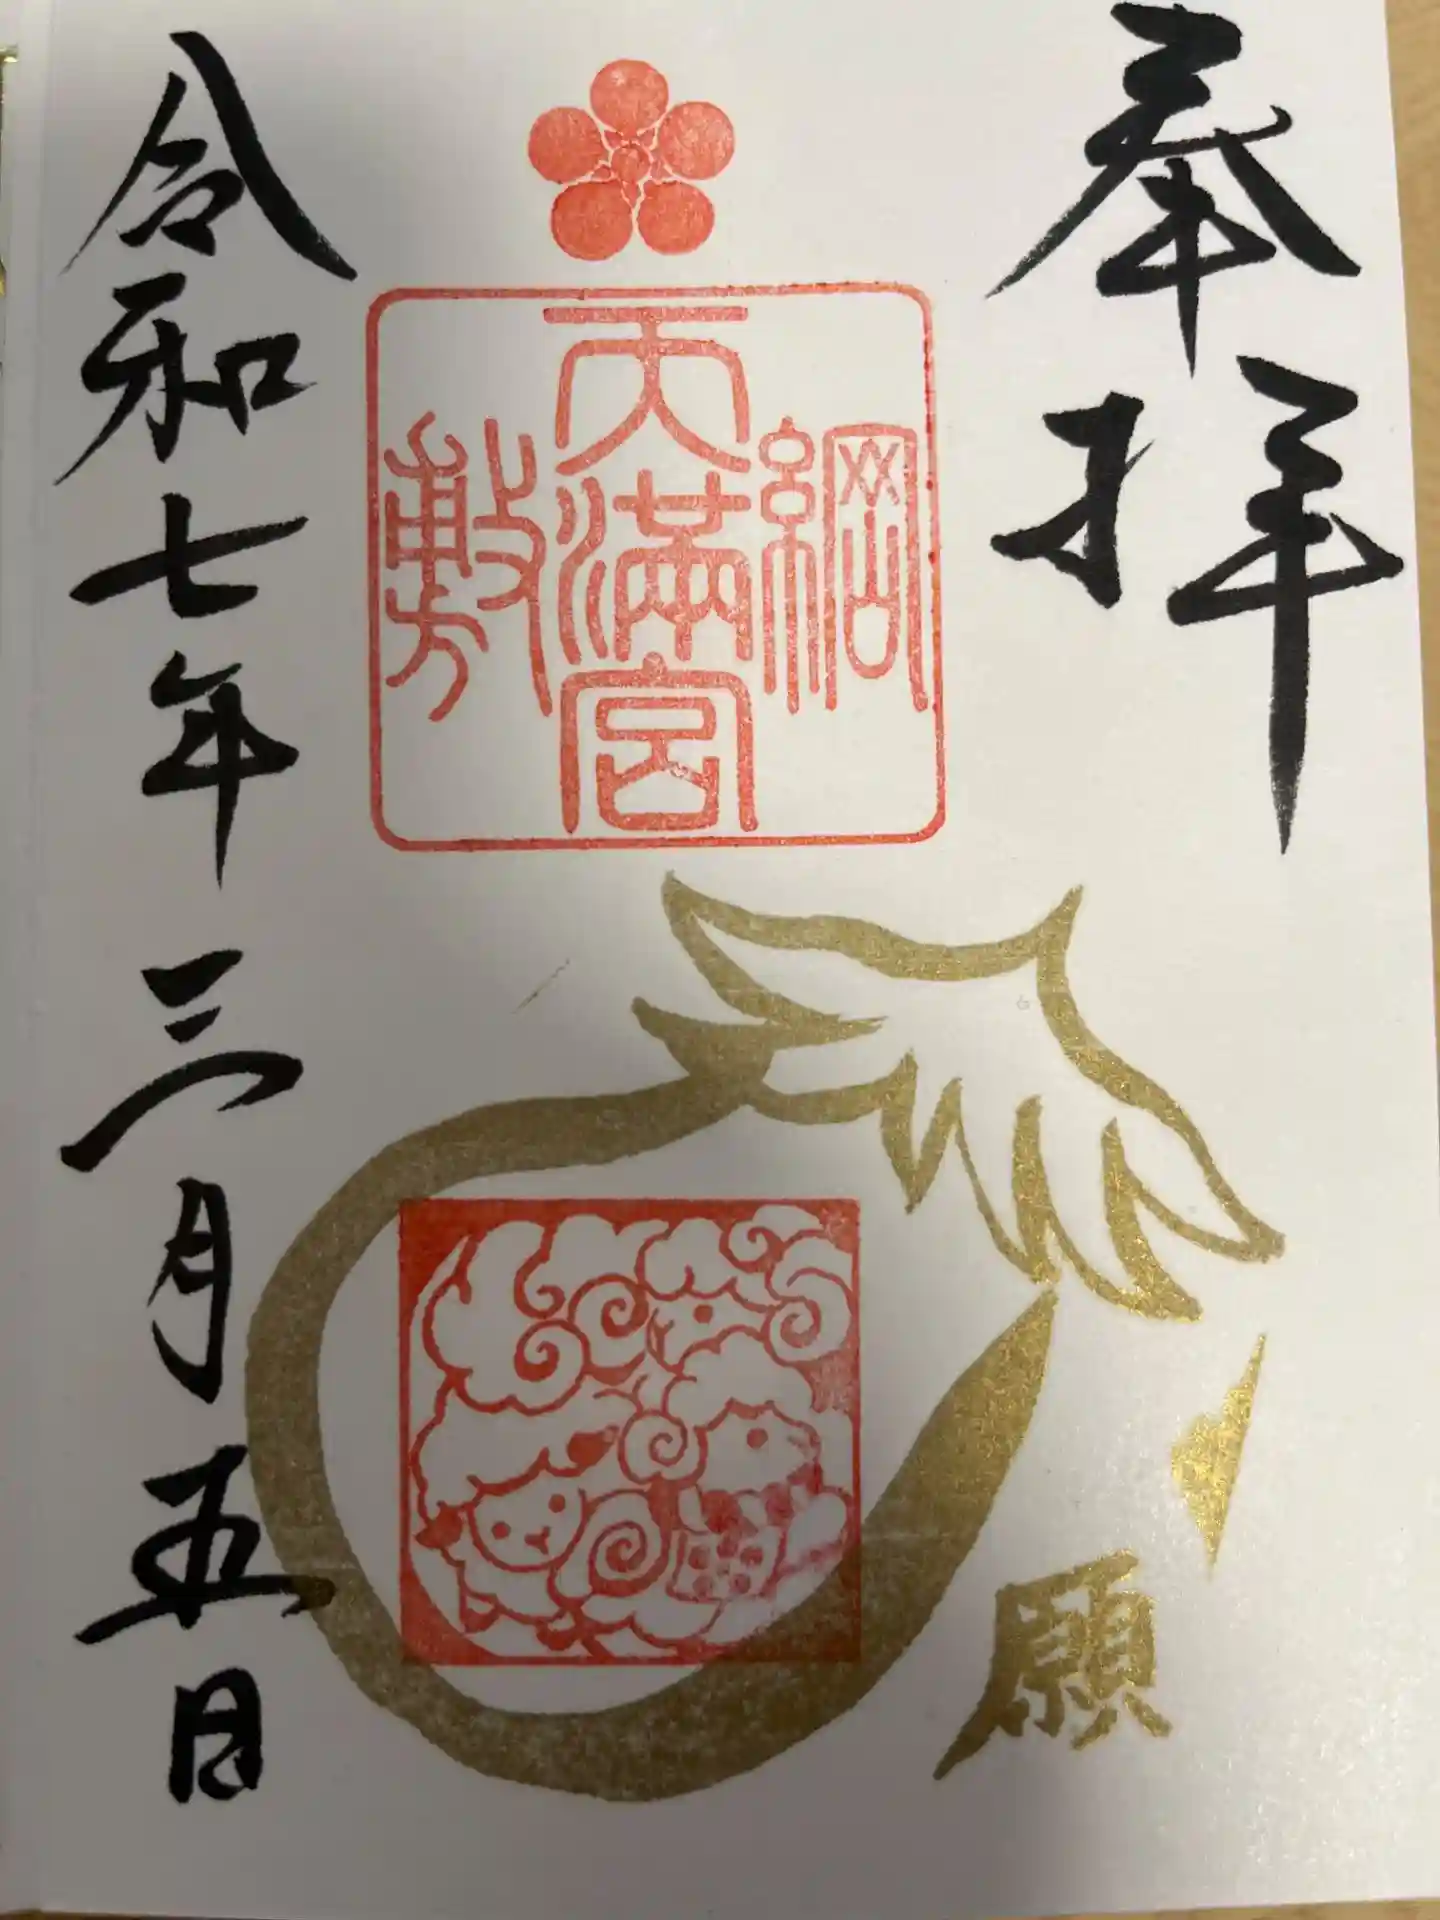 奉拝
綱敷
天満宮
願
令和七年三月五日